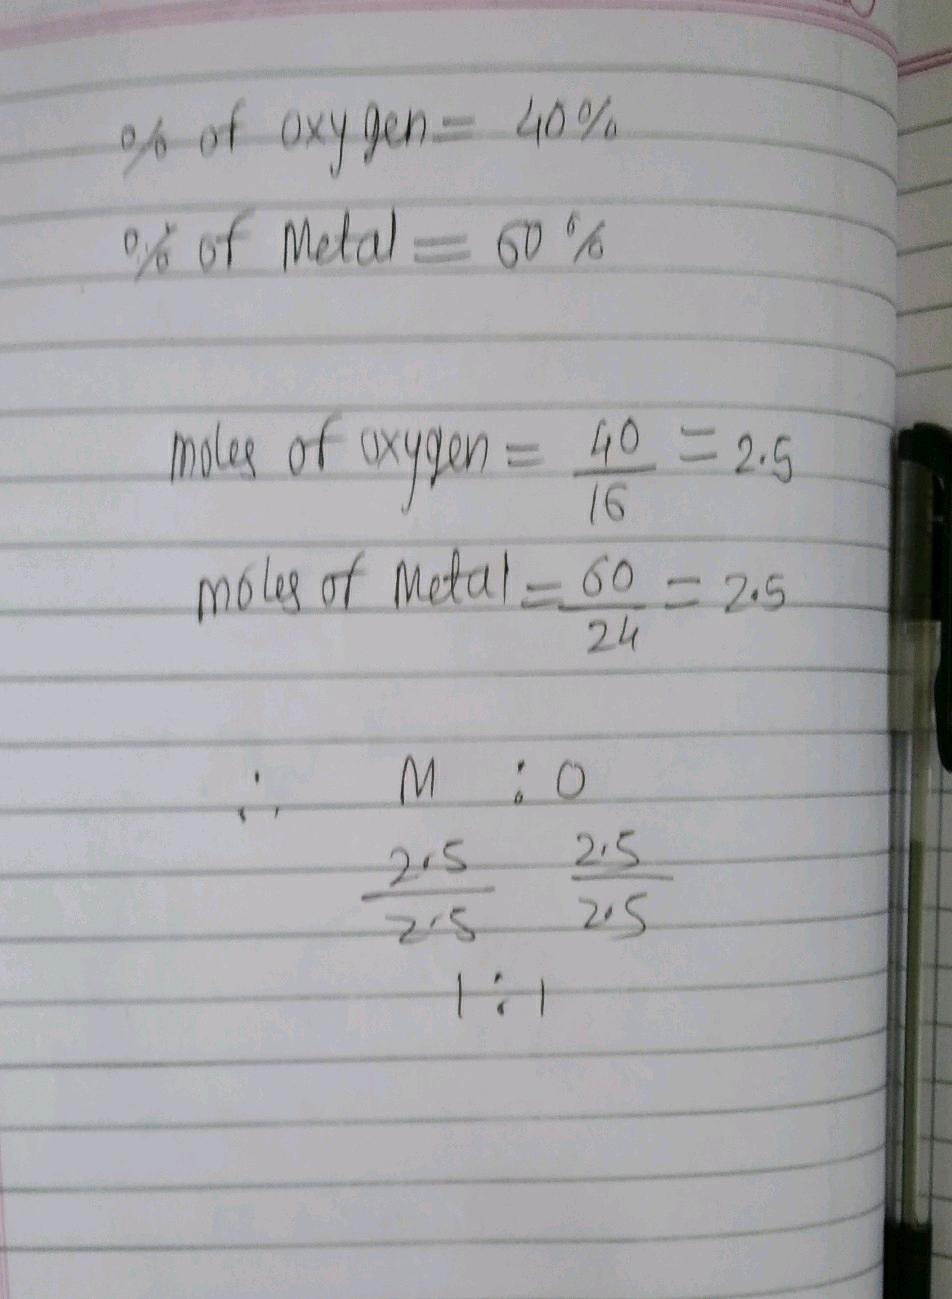 % of oxygen = 40%
% of Metal = 60%
moles of oxygen = 40/16 = 2.5
moles of Metal = 60/24 = 2.5
∴ M : O
2.5/2.5 2.5/2.5
1 : 1